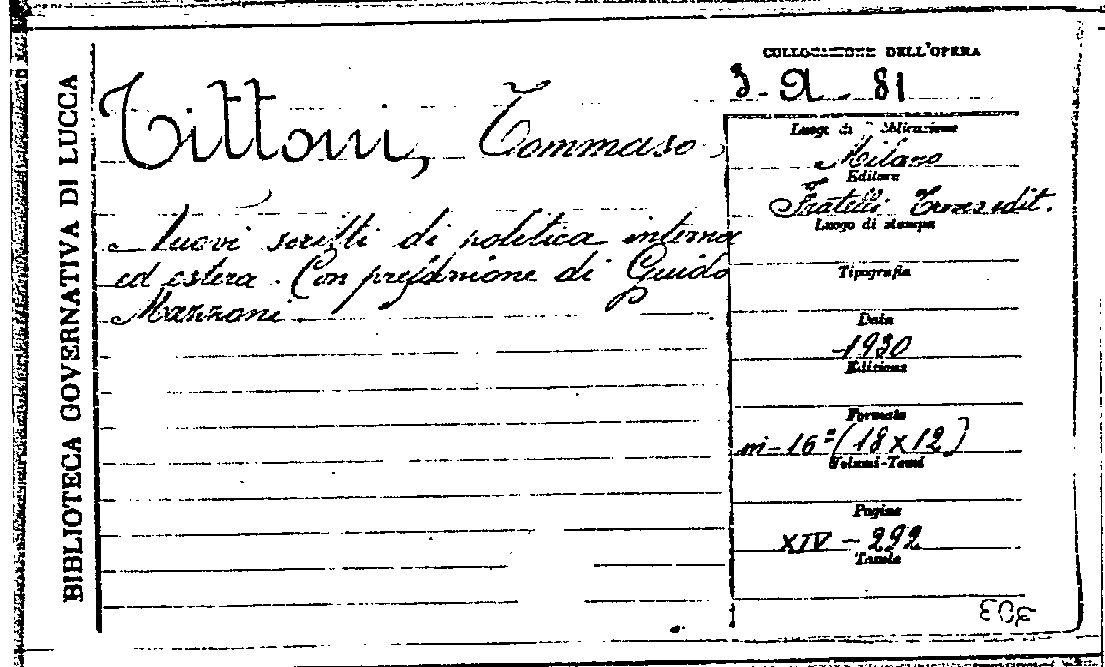 BIBLIOTECA GOVERNATIVA DI LUCCA
COLLOCAZIONE DELL'OPERA
3 - A - 81
Tittoni, Tommaso.
Nuovi scritti di politica interna
ed estera. Con prefazione di Guido
Mazzoni.
Luogo di Pubblicazione
Milano
Editore
Fratelli Treves edit.
Luogo di stampa
Tipografia
Data
1930
Edizione
Formato
in-16º (18x12)
Volumi-Tomi
Pagine
XIV - 292
Tavole
303